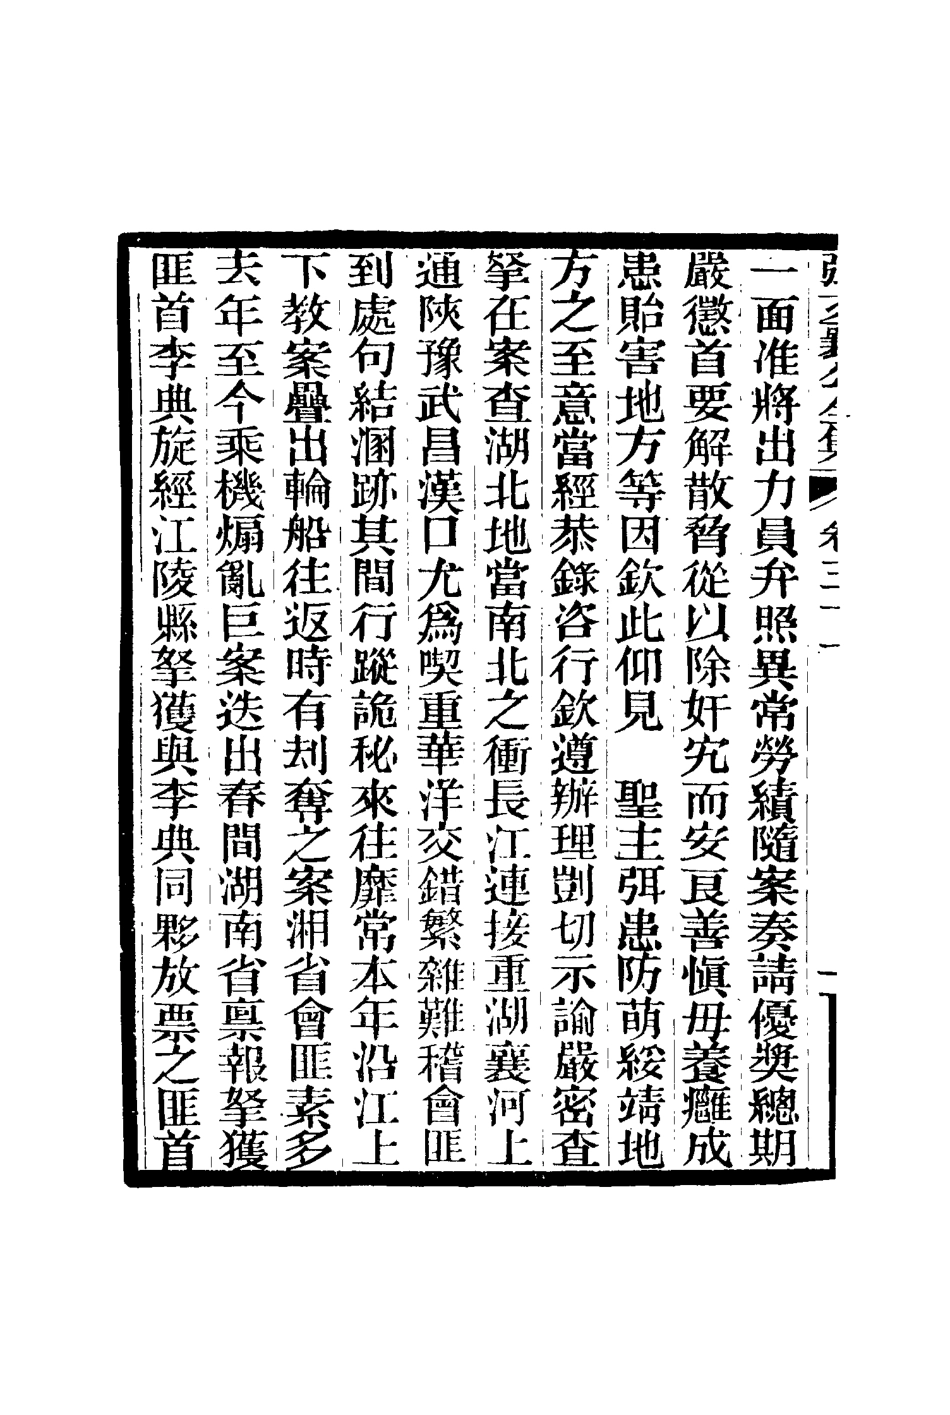 一面准將出力員弁照異常勞績隨案奏請優奬總期
嚴懲首要解散脅從以除奸宄而安良善愼毋養癰成
患貽害地方等因欽此仰見　聖主弭患防萌綏靖地
方之至意當經恭錄咨行欽遵辦理剴切示諭嚴密查
拏在案查湖北地當南北之衝長江連接重湖襄河上
通陝豫武昌漢口尤爲喫重華洋交錯繁雜難稽會匪
到處句結溷跡其間行蹤詭秘來往靡常本年沿江上
下教案疊出輪船往返時有刦奪之案湘省會匪素多
去年至今乘機煽亂巨案迭出春間湖南省稟報拏獲
匪首李典旋經江陵縣拏獲與李典同夥放票之匪首